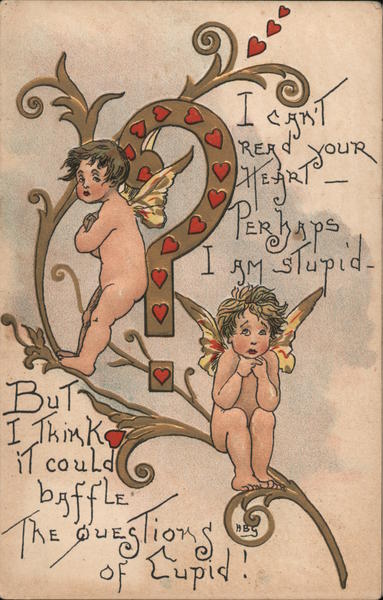 I can't
read your
Heart —
Perhaps
I am stupid -
But
I think
it could
baffle
The questions
of Cupid!
HBG